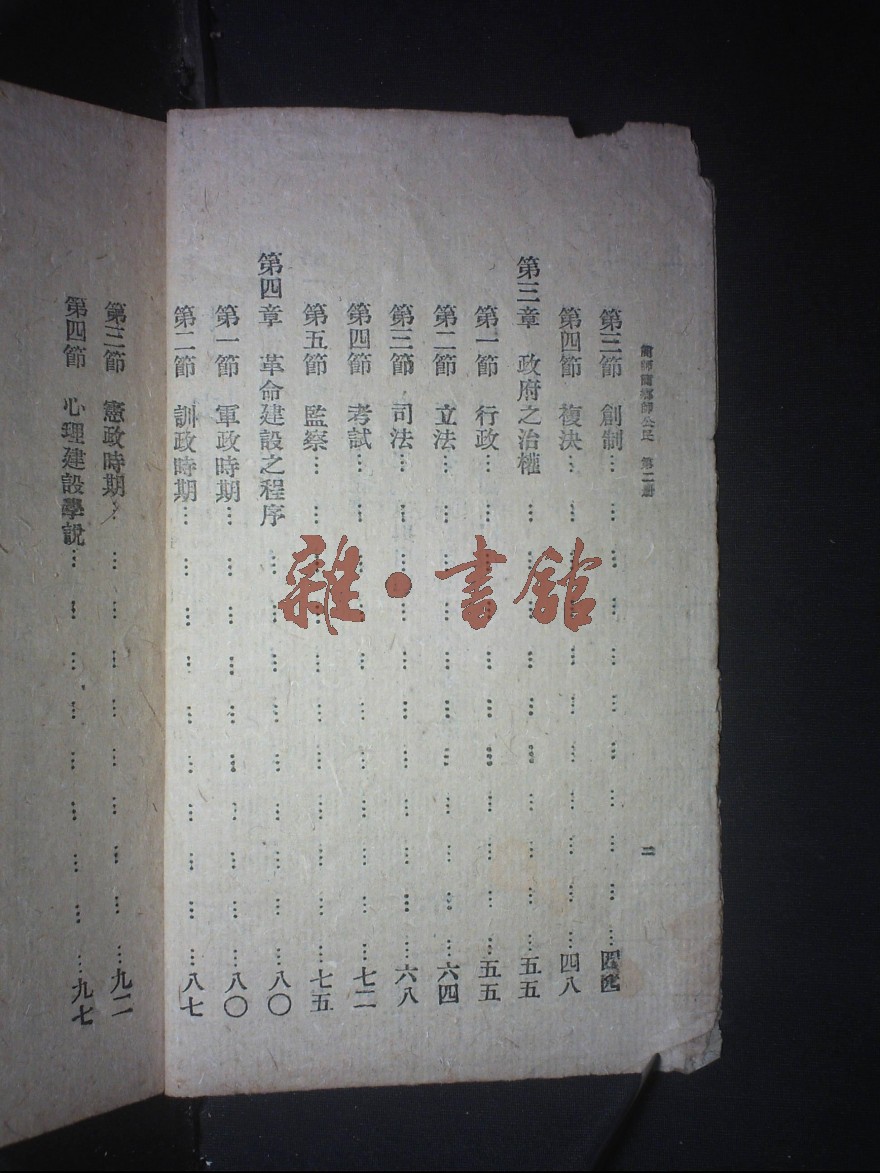 簡師簡鄉師公民 第二册 二
第三節 創制
第四節 複決 四八
第三章 政府之治權 五五
第一節 行政 五五
第二節 立法 六四
第三節 司法 六八
第四節 考試 七二
第五節 監察 七五
第四章 革命建設之程序 八〇
第一節 軍政時期 八〇
第二節 訓政時期 八七
第三節 憲政時期 九二
第四節 心理建設學說 九七
雜·書館